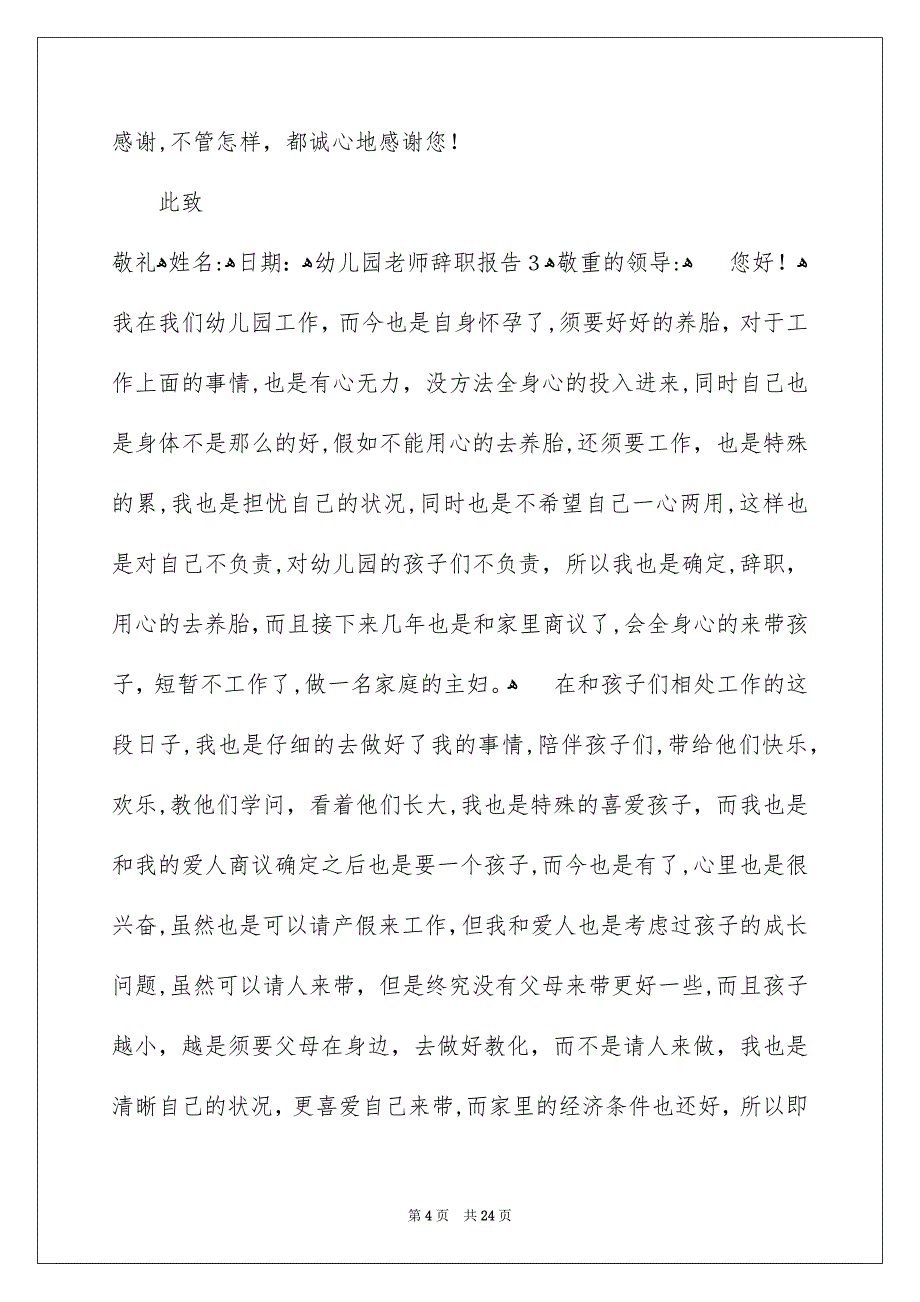 感谢,不管怎样，都诚心地感谢您！
此致
敬礼ﻫ姓名:ﻫ日期：ﻫ幼儿园老师辞职报告３ﻫ敬重的领导:ﻫ　您好！ﻫ
我在我们幼儿园工作，而今也是自身怀孕了,须要好好的养胎，对于工
作上面的事情,也是有心无力，没方法全身心的投入进来,同时自己也
是身体不是那么的好,假如不能用心的去养胎,还须要工作，也是特殊
的累,我也是担忧自己的状况,同时也是不希望自己一心两用,这样也
是对自己不负责,对幼儿园的孩子们不负责，所以我也是确定,辞职，
用心的去养胎，而且接下来几年也是和家里商议了,会全身心的来带孩
子，短暂不工作了,做一名家庭的主妇。ﻫ　在和孩子们相处工作的这
段日子,我也是仔细的去做好了我的事情,陪伴孩子们,带给他们快乐，
欢乐,教他们学问，看着他们长大,我也是特殊的喜爱孩子，而我也是
和我的爱人商议确定之后也是要一个孩子,而今也是有了,心里也是很
兴奋,虽然也是可以请产假来工作，但我和爱人也是考虑过孩子的成长
问题,虽然可以请人来带，但是终究没有父母来带更好一些,而且孩子
越小，越是须要父母在身边，去做好教化，而不是请人来做，我也是
清晰自己的状况，更喜爱自己来带,而家里的经济条件也还好，所以即
第 4 页 共 24 页